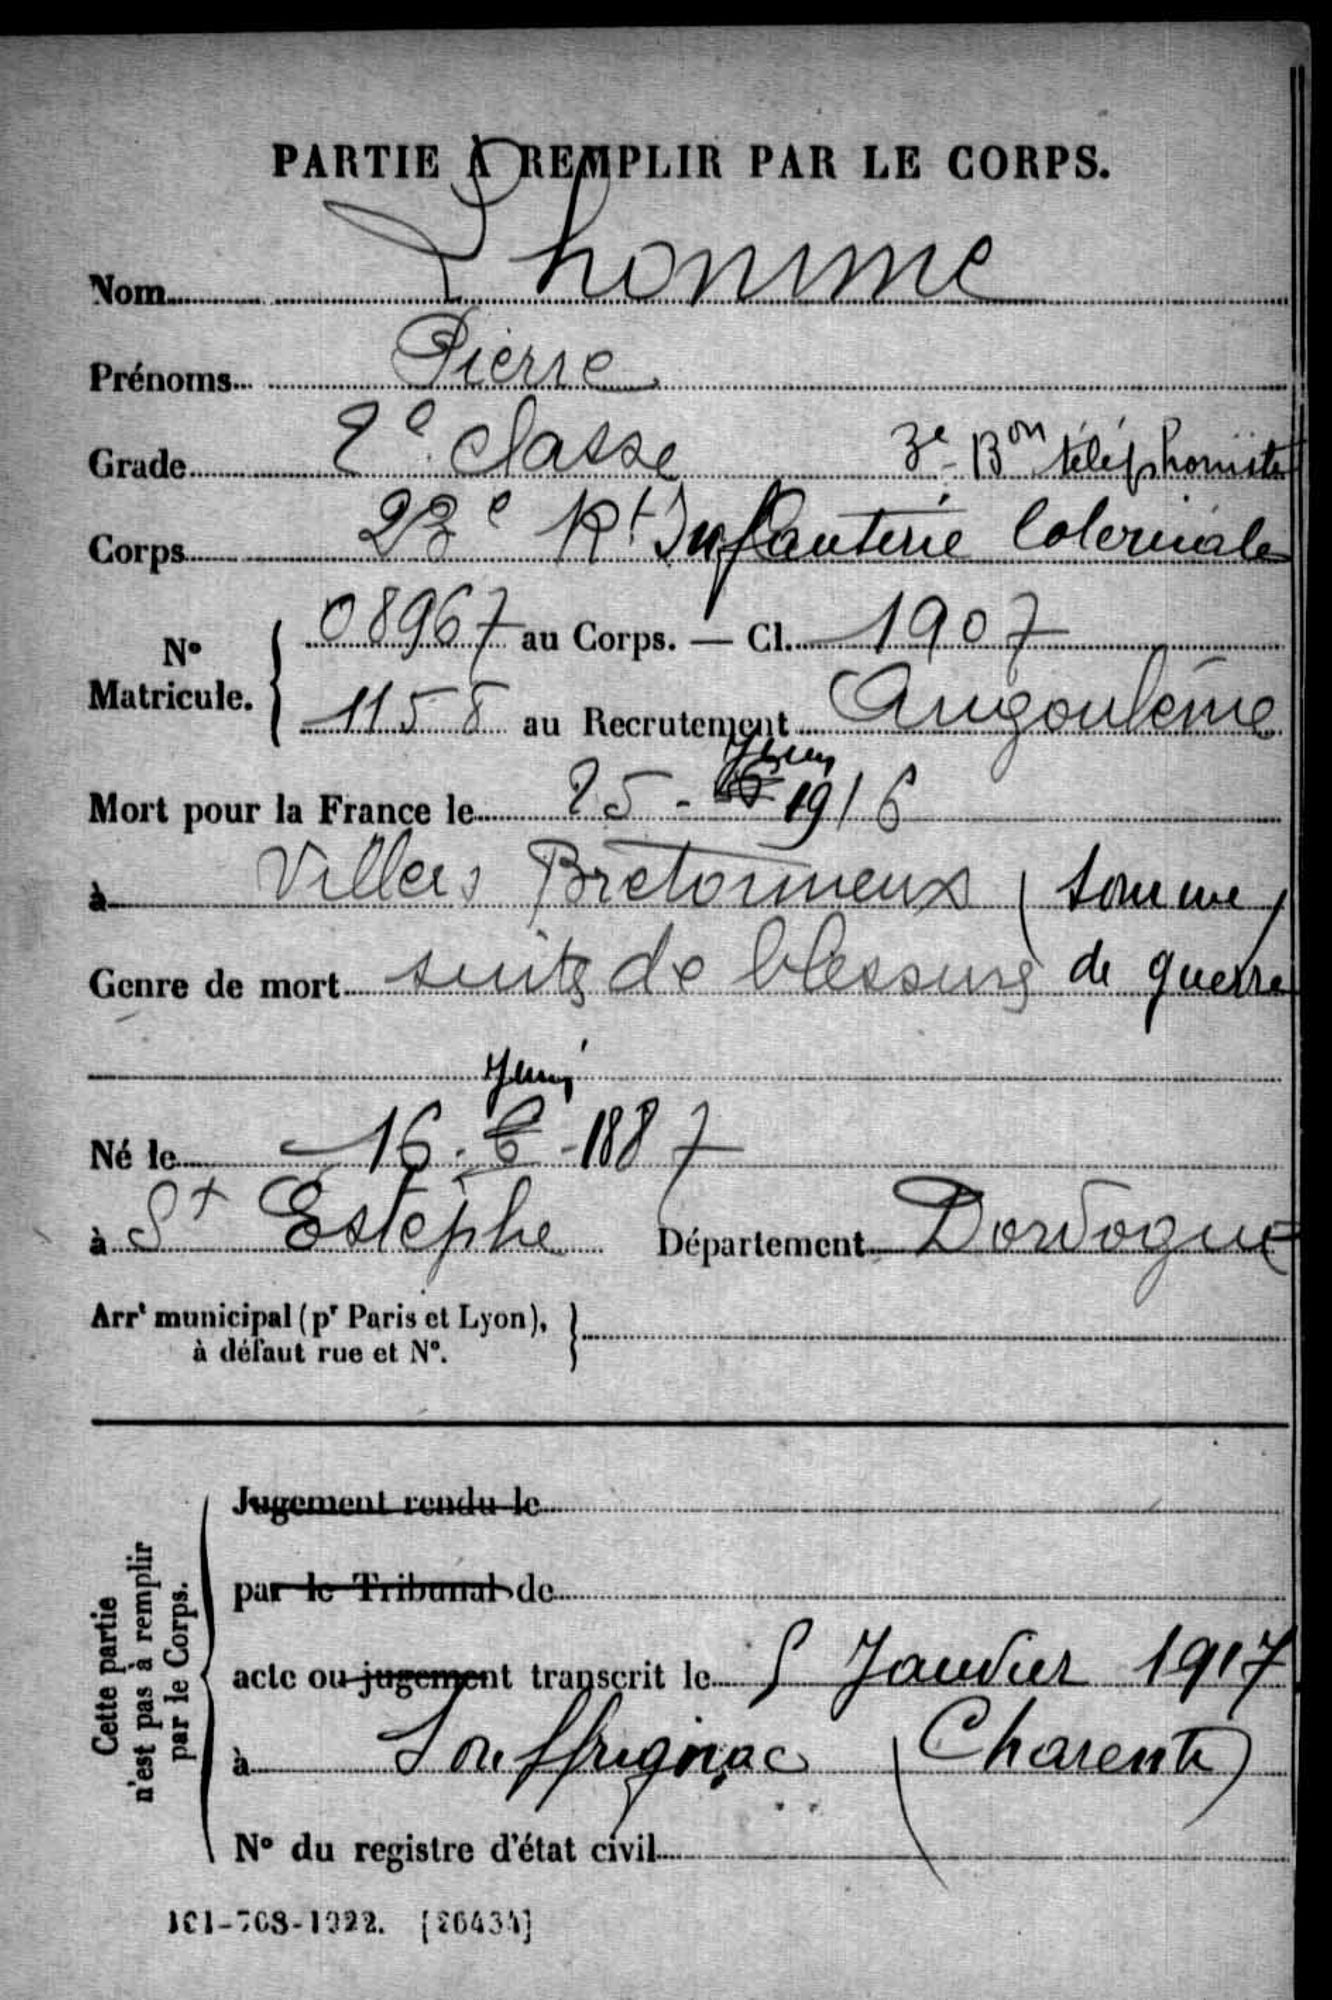 PARTIE À REMPLIR PAR LE CORPS.
Nom Lhomme
Prénoms Pierre
Grade 2e classe 3e Bon téléphoniste
Corps 23e Rt Infanterie Coloniale
No Matricule. 08967 au Corps. — Cl. 1907
1158 au Recrutement Angoulême
Juin
Mort pour la France le 25 - 1916
à Villers Bretonneux (Somme)
Genre de mort suites de blessures de guerre
Juin
Né le 16 - 6 - 1887
à St Estèphe Département Dordogne
Arrt municipal (pr Paris et Lyon),
à défaut rue et No.
Cette partie
n'est pas à remplir
par le Corps.
Jugement rendu le
par le Tribunal de
acte ou jugement transcrit le 5 Janvier 1917
à Souffrignac (Charente)
No du registre d'état civil
101-708-1922. [26434]